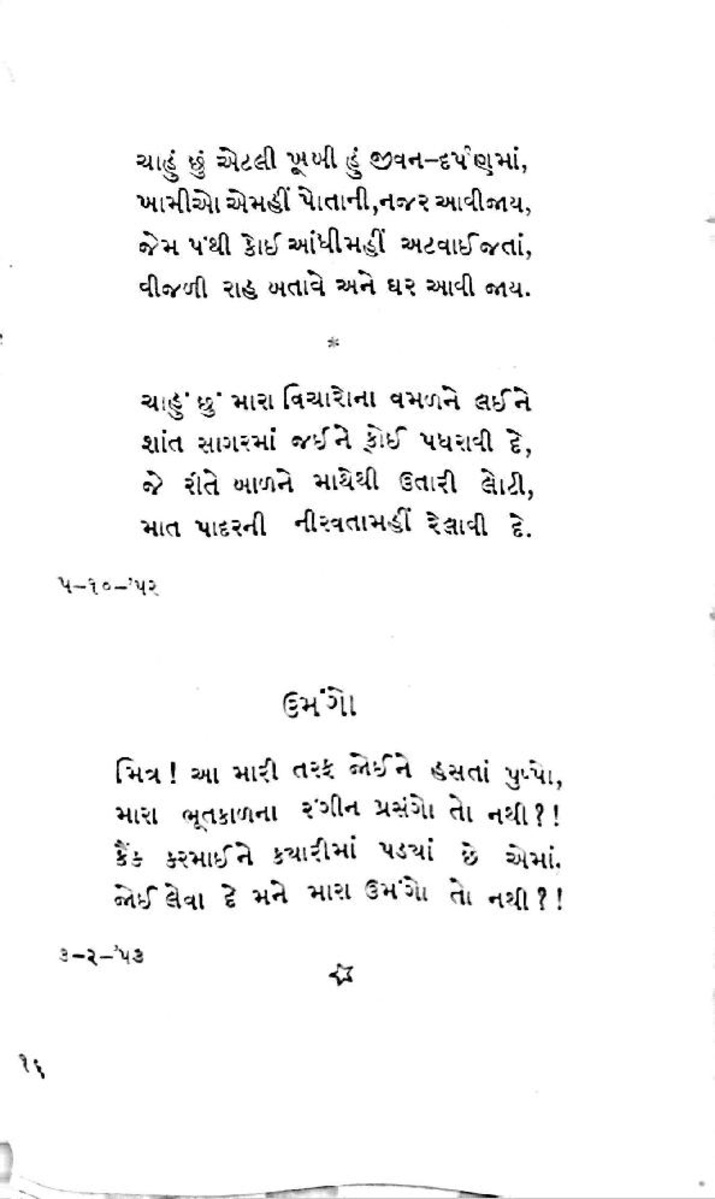 ચાહું છું એટલી ખૂબી હું જીવન-દર્પણમાં,
ખામીઓ એમહીં પોતાની,નજર આવીજાય,
જેમ પંથી કોઈ આંધીમહીં અટવાઈજતાં,
વીજળી રાહ બતાવે અને ઘર આવી જાય.
*
ચાહું છું મારા વિચારોના વમળને લઈને
શાંત સાગરમાં જઈને કોઈ પધરાવી દે,
જે રીતે બાળને માથેથી ઉતારી લોટી,
માત પાદરની નીરવતામહીં રેલાવી દે.
૫-૧૦-'૫૨
ઉમંગો
મિત્ર! આ મારી તરફ જોઈને હસતાં પુષ્પો,
મારા ભૂતકાળના રંગીન પ્રસંગો તો નથી?!
કૈંક કરમાઈને ક્યારીમાં પડ્યાં છે એમાં.
જોઈ લેવા દે મને મારા ઉમંગો તો નથી?!
૩-૨-'૫૩
૧૬